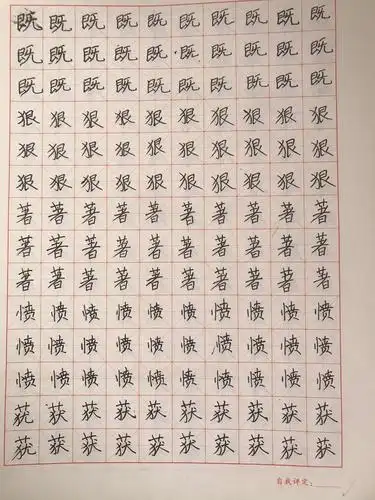 既既既既既既既既既既
既既既既既既既既既既
既既既既既既既既既既
狠狠狠狠狠狠狠狠狠狠
狠狠狠狠狠狠狠狠狠狠
狠狠狠狠狠狠狠狠狠狠
著著著著著著著著著著
著著著著著著著著著著
著著著著著著著著著著
愤愤愤愤愤愤愤愤愤愤
愤愤愤愤愤愤愤愤愤愤
愤愤愤愤愤愤愤愤愤愤
获获获获获获获获获获
获获获获获获获获获获
自我评定：